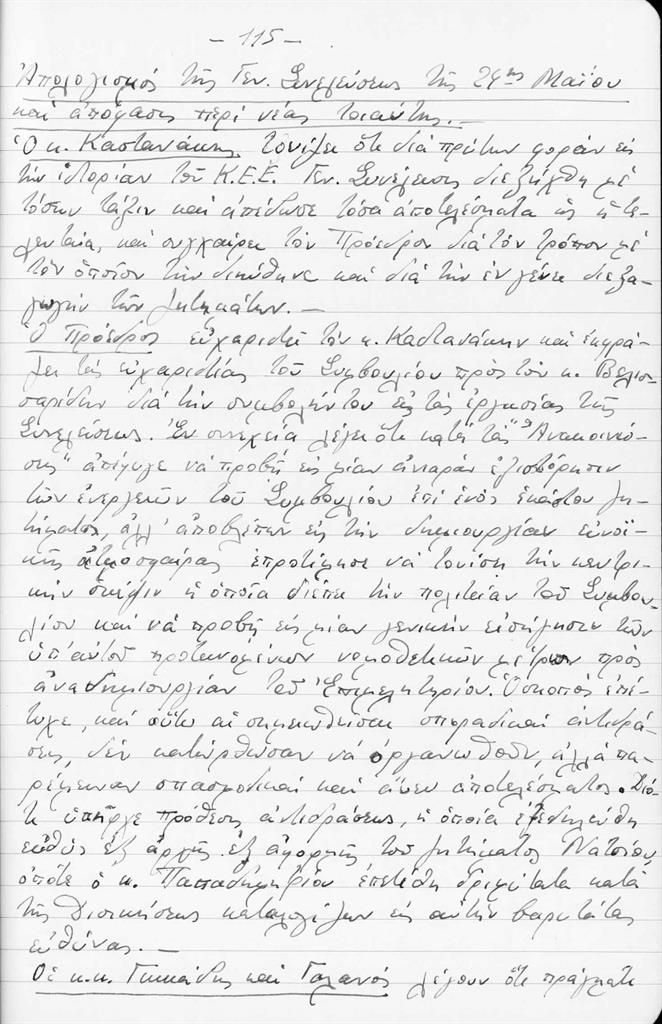 - 115 -
Ἀπολογισμός τῆς Γεν. Συνελεύσεως τῆς 24ης Μαΐου
καί ἀπόφασις περί νέας τοιαύτης.—
Ὁ κ. Καστανάκης τονίζει ὅτι διά πρώτην φοράν εἰς
τήν ἱστορίαν τοῦ Κ.Ε.Ε. Γεν. Συνέλευσις διεξήχθη μέ
τόσην τάξιν καί ἀπέδωσε τόσα ἀποτελέσματα ὡς ἡ τε-
λευταία, καί συγχαίρει τόν Πρόεδρον διά τόν τρόπον μέ
τόν ὁποῖον τήν διηύθυνε καί διά τήν ἐν γένει διεξα-
γωγήν τῶν ζητημάτων.—
Ὁ Πρόεδρος εὐχαριστεῖ τόν κ. Καστανάκην καί ἐκφρά-
ζει τάς εὐχαριστίας τοῦ Συμβουλίου πρός τόν κ. Βελισ-
σαρίδην διά τήν συμβολήν του εἰς τάς ἐργασίας τῆς
Συνελεύσεως. Ἐν συνεχείᾳ λέγει ὅτι κατά τάς "Ἀνακοινώ-
σεις" ἀπέφυγε νά προβῇ εἰς μίαν ἀνιαράν ἐξιστόρησιν
τῶν ἐνεργειῶν τοῦ Συμβουλίου ἐπί ἑνός ἑκάστου ζη-
τήματος, ἀλλ' ἀποβλέπων εἰς τήν δημιουργίαν εὐνοϊ-
κῆς ἀτμοσφαίρας ἐπροτίμησε νά τονίσῃ τήν κεντρι-
κήν σκέψιν ἡ ὁποία διέπει τήν πολιτείαν τοῦ Συμβου-
λίου καί νά προβῇ εἰς μίαν γενικήν εἰσήγησιν τῶν
ὑπ' αὐτοῦ προτεινομένων νομοθετικῶν μέτρων πρός
ἀναδημιουργίαν τοῦ Ἐπιμελητηρίου. Ὁ σκοπός ἐπέ-
τυχε, καί οὕτω αἱ σημειωθεῖσαι σποραδικαί ἀντιδρά-
σεις, δέν κατώρθωσαν νά ὀργανωθοῦν, ἀλλά πα-
ρέμειναν σπασμωδικαί καί ἄνευ ἀποτελέσματος. Διό-
τι ὑπῆρχε πρόθεσις ἀντιδράσεως, ἡ ὁποία ἐξεδηλώθη
εὐθύς ἐξ ἀρχῆς ἐξ ἀφορμῆς τοῦ ζητήματος Νάτσιου,
ὁπότε ὁ κ. Παπαδημητρίου ἐπετέθη δριμύτατα κατά
τῆς Διοικήσεως καταλογίζων εἰς αὐτήν βαρυτάτας
εὐθύνας.—
Οἱ κ.κ. καί Γαλανός λέγουν ὅτι πράγματι